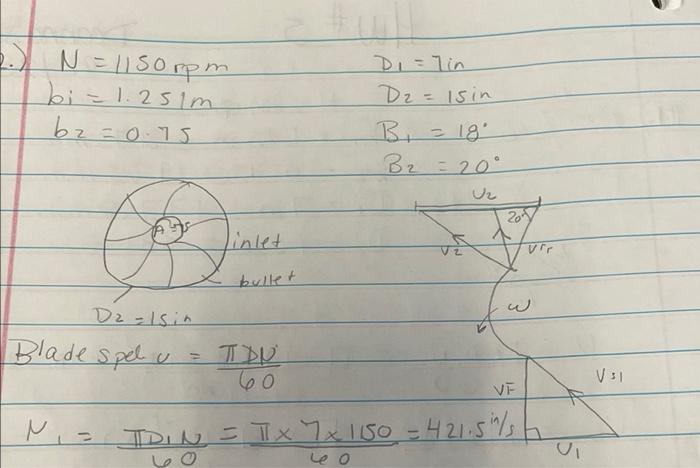 2.) N = 1150 rpm
b1 = 1.251m
b2 = 0.75
D1 = 7in
D2 = 15in
B1 = 18°
B2 = 20°
inlet
outlet
D2 = 15in
U2
20°
V2
Vr
ω
VF
Vs1
U1
Blade spel u = πDN / 60
N1 = πD1N / 60 = π × 7 × 1150 / 60 = 421.5 in/s